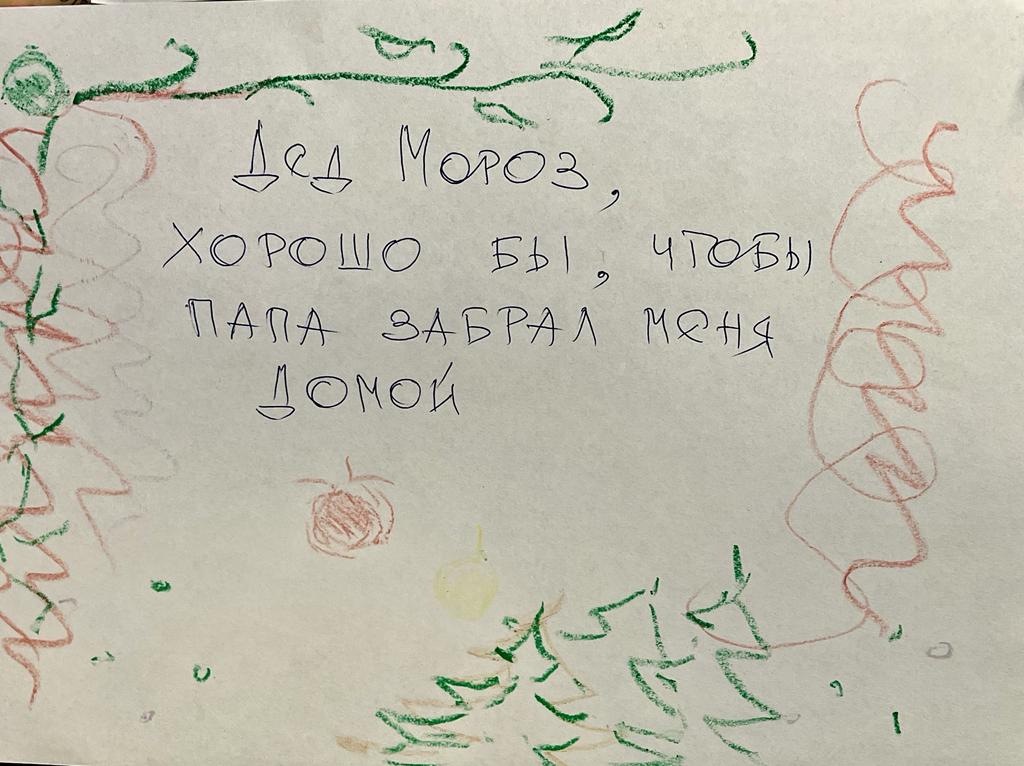 Дед Мороз,
ХОРОШО БЫ, ЧТОБЫ
ПАПА ЗАБРАЛ МЕНЯ
ДОМОЙ